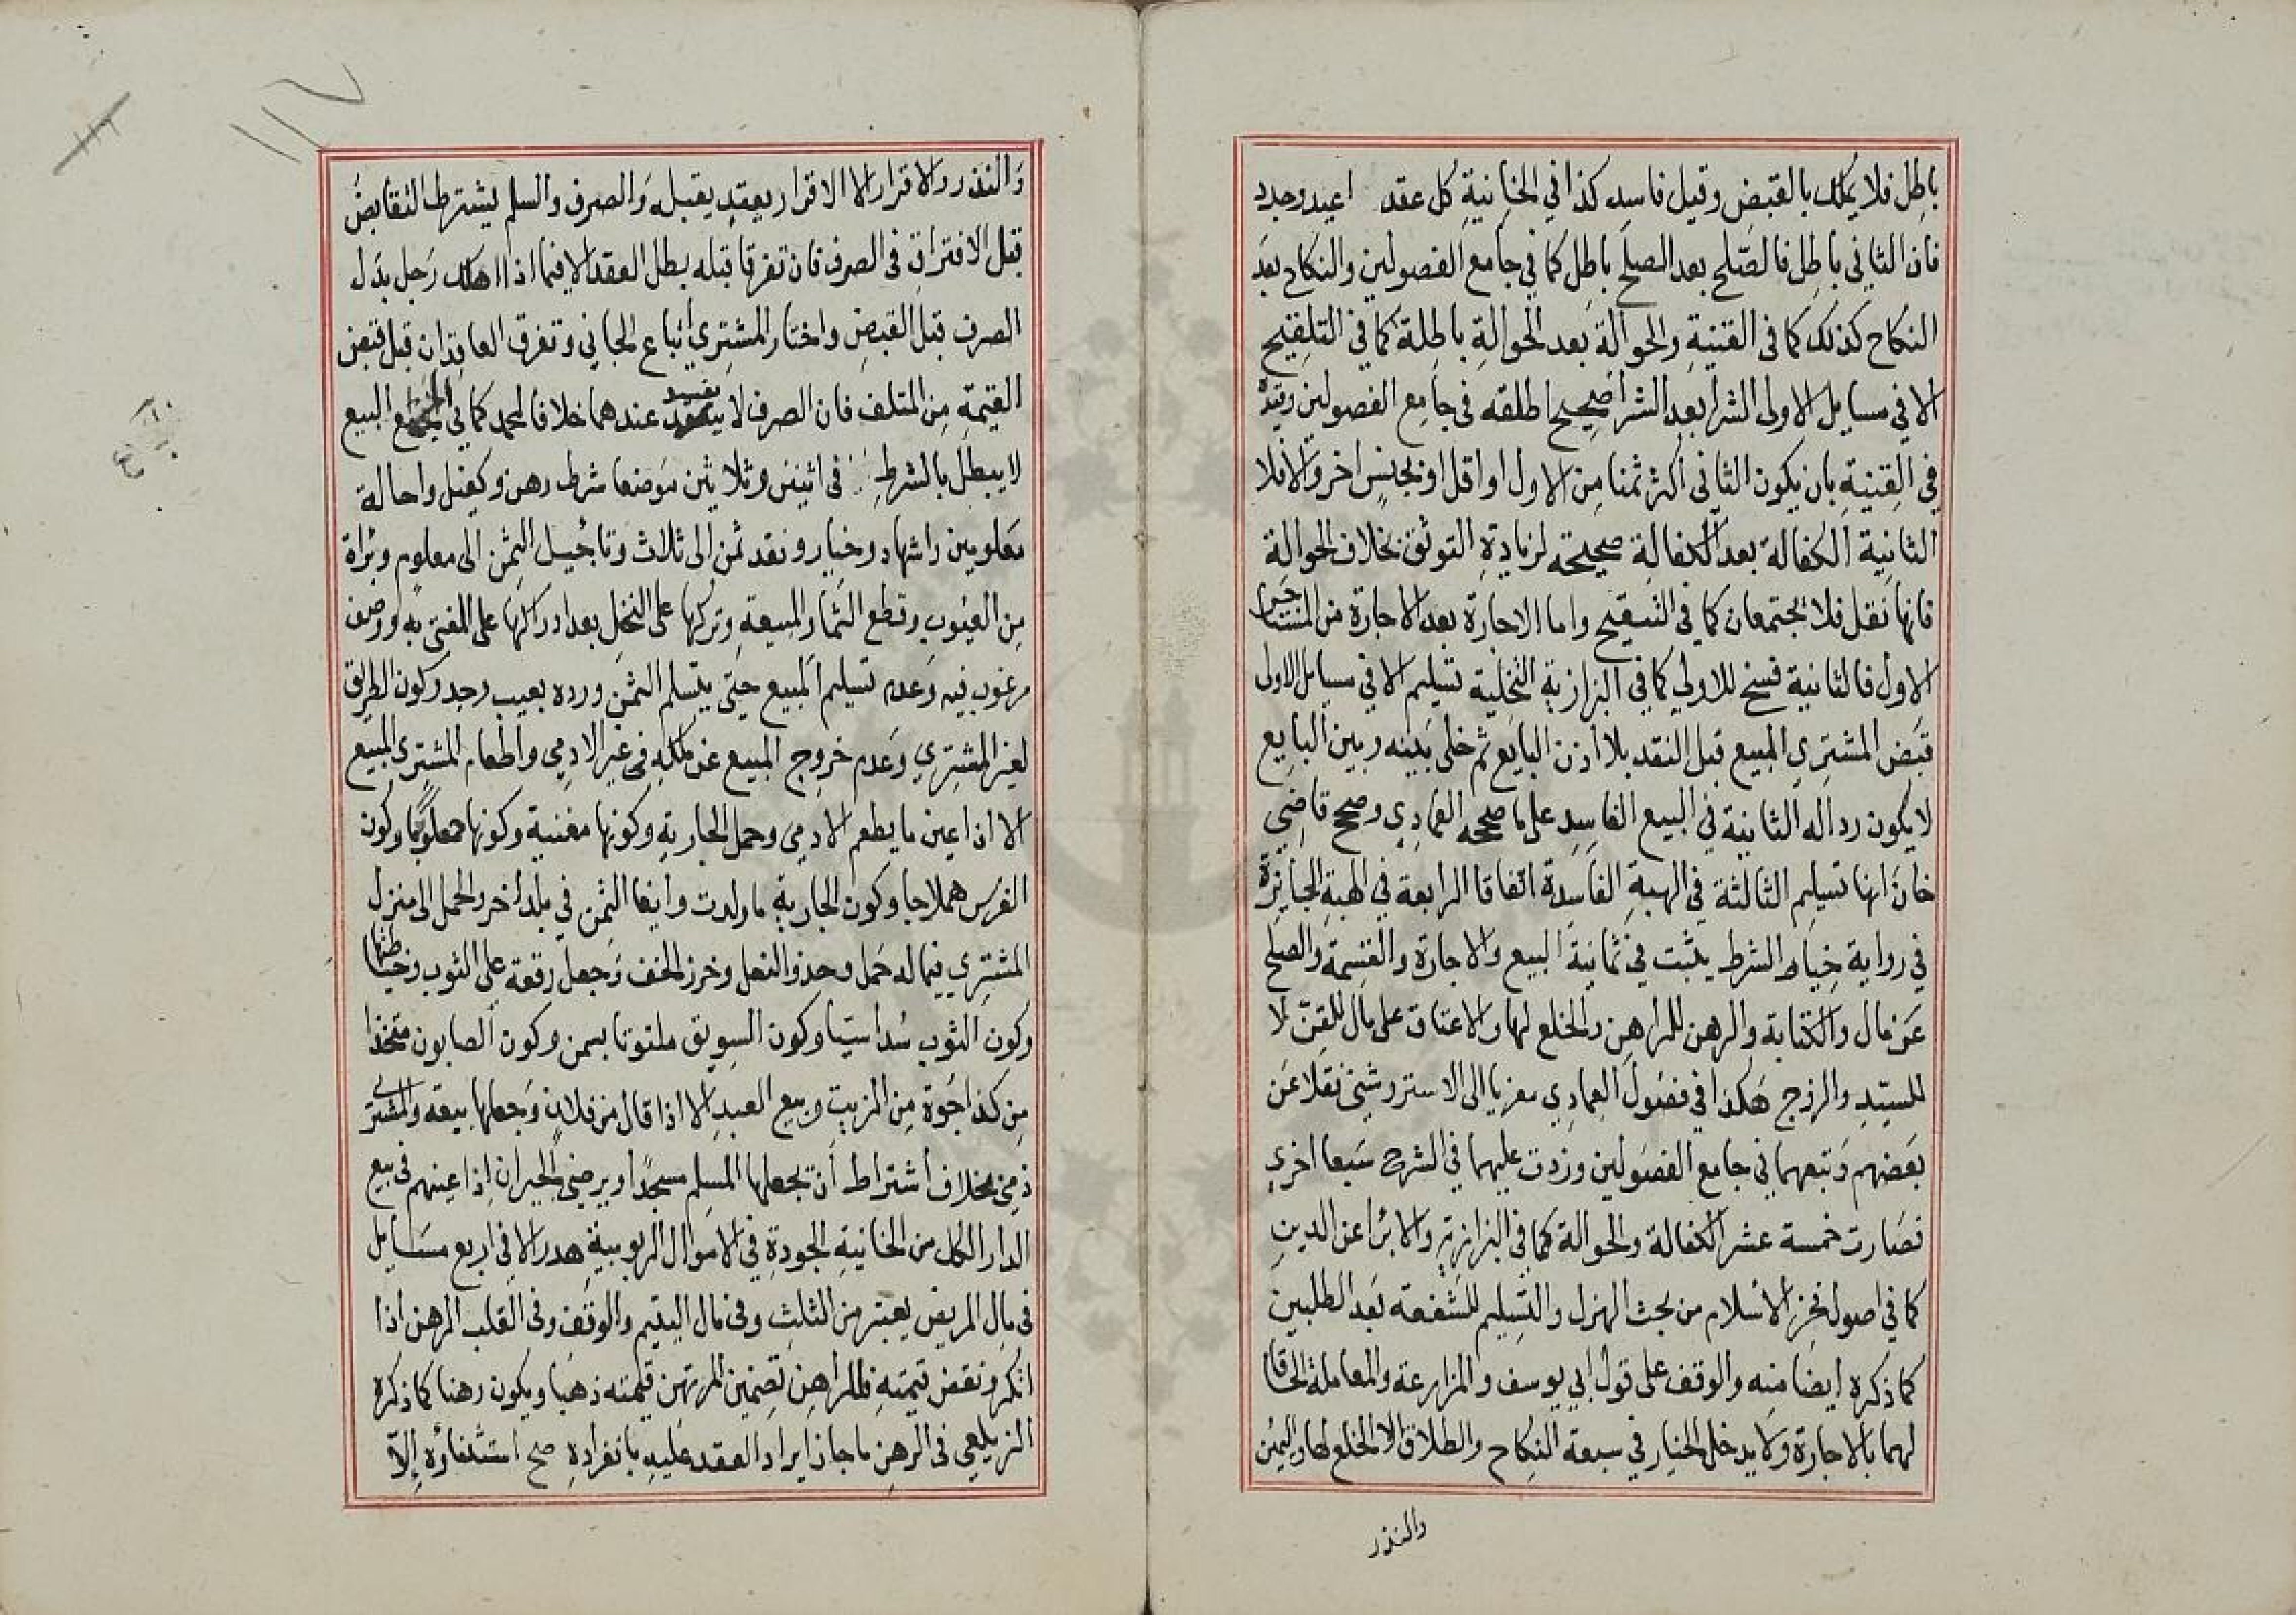 باطل فلا يملك بالقبض وقيل فاسد كذا في الخانية كل عقد اعيد وجدد
فان الثاني باطل فالصلح بعد الصلح باطل كما في جامع الفصولين والنكاح بعد
النكاح كذلك كما في القنية والحوالة بعد الحوالة باطلة كما في التلقيح
الا في مسايل الاولى الشرا بعد الشرا صحيح اطلقه في جامع الفصولين وقيده
في القنية بان يكون الثاني اكثر ثمنا من الاول او اقل او بجنس اخر والا فلا
الثانية الكفالة بعد الكفالة صحيحة لزيادة التوثق بخلاف الحوالة
فانها نقل فلا يجتمعان كما في التنقيح واما الاجارة بعد الاجارة من المستاجر
الاول فالثانية فسخ للاولى كما في البزازية التخلية تسليم الا في مسايل الاولى
قبض المشتري المبيع قبل النقد بلا أذن البايع ثم خلى بينه وبين البايع
لا يكون رداله الثانية في البيع الفاسد على ما صححه العمادي وصحح قاضي
خان انها تسليم الثالثة في الهبة الفاسدة اتفاقا الرابعة في الهبة الجايزة
في رواية خيار الشرط يثبت في ثمانية البيع والاجارة والقسمة والصلح
عن مال والكتابة والرهن للراهن والخلع لها والاعتاق على مال للقن لا
للسيد والزوج هكذا في فصول العمادي معزيا الى الاستروشنى نقلا عن
بعضهم وتبعهما في جامع الفصولين وزدت عليهما في الشرح سبعا اخرى
فصارت خمسة عشر الكفالة والحوالة كما في البزازية والابرا عن الدين
كما في اصول فخر الاسلام من بحث الهزل والتسليم للشفعة بعد الطلبين
كما ذكره ايضا منه والوقف على قول ابي يوسف والمزارعة والمعاملة الحاقا
لهما بالاجارة ولا يدخل الخيار في سبعة النكاح والطلاق الا الخلع لها واليمين
والنذر
والنذر والاقرار الا الاقرار بعقد يقبله والصرف والسلم يشترط التقابض
قبل الافتراق فى الصرف فان تفرقا قبله بطل العقد الا فيما اذا اهلك رجل بدل
الصرف قبل القبض واختار المشتري اتباع الجاني وتفرق العاقدان قبل قبض
القيمة من المتلف فان الصرف لا يفسد عندهما خلافا لمحمد كما في الجامع البيع
لا يبطل بالشرط فى اثنين وثلاثين موضعا شرط رهن وكفيل واحالة
معلومين واشهاد وخيار ونقد ثمن الى ثلاث وتاجيل الثمن الى معلوم وبراة
من العيوب وقطع الثمار المبيعة وتركها على النخل بعد ادراكها على المفتى به ووصف
مرغوب فيه وعدم تسليم المبيع حتى يتسلم الثمن ورده بعيب وجد وكون الطريق
لغير المشتري وعدم خروج المبيع عن ملكه فى غير الادمي واطعام المشترى المبيع
الا اذا عين ما يطعم الادمى وحمل الجارية وكونها مغنية وكونها حلوبا وكون
الفرس هملاجا وكون الجارية ما ولدت وايفا الثمن في بلد اخر والحمل الى منزل
المشتري فيما له حمل وحذو النعل وخرز الخف وجعل رقعة على الثوب وخياطتها
وكون الثوب سداسيا وكون السويق ملتوتا بسمن وكون الصابون متخذا
من كذا جرة من الزيت وبيع العبد الا اذا قال من فلان وجعلها بيعة والمشترى
ذمى بخلاف اشتراط أن يجعلها المسلم مسجدا او يرضى الجيران إذا عينهم فى بيع
الدار الكل من الخانية الجودة في الاموال الربوية هدر الا في اربع مسايل
فى مال المريض يعتبر من الثلث وفى مال اليتيم والوقف وفى القلب الرهن اذا
انكسر ونقض قيمته فللراهن تضمين المرتهن قيمته ذهبا ويكون رهنا كما ذكره
الزيلعي فى الرهن ما جاز ايراد العقد عليه بانفراده صح استثناؤه إلا